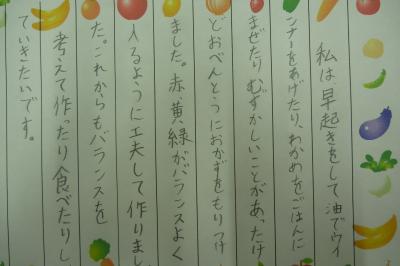 私は早起きをして油でウイ
ンナーをあげたり、わかめをごはんに
まぜたりむずかしいことがあったけ
どおべんとうにおかずをもりつけ
ました。赤黄緑がバランスよく
入るように工夫して作りまし
た。これからもバランスを
考えて作ったり食べたりし
ていきたいです。